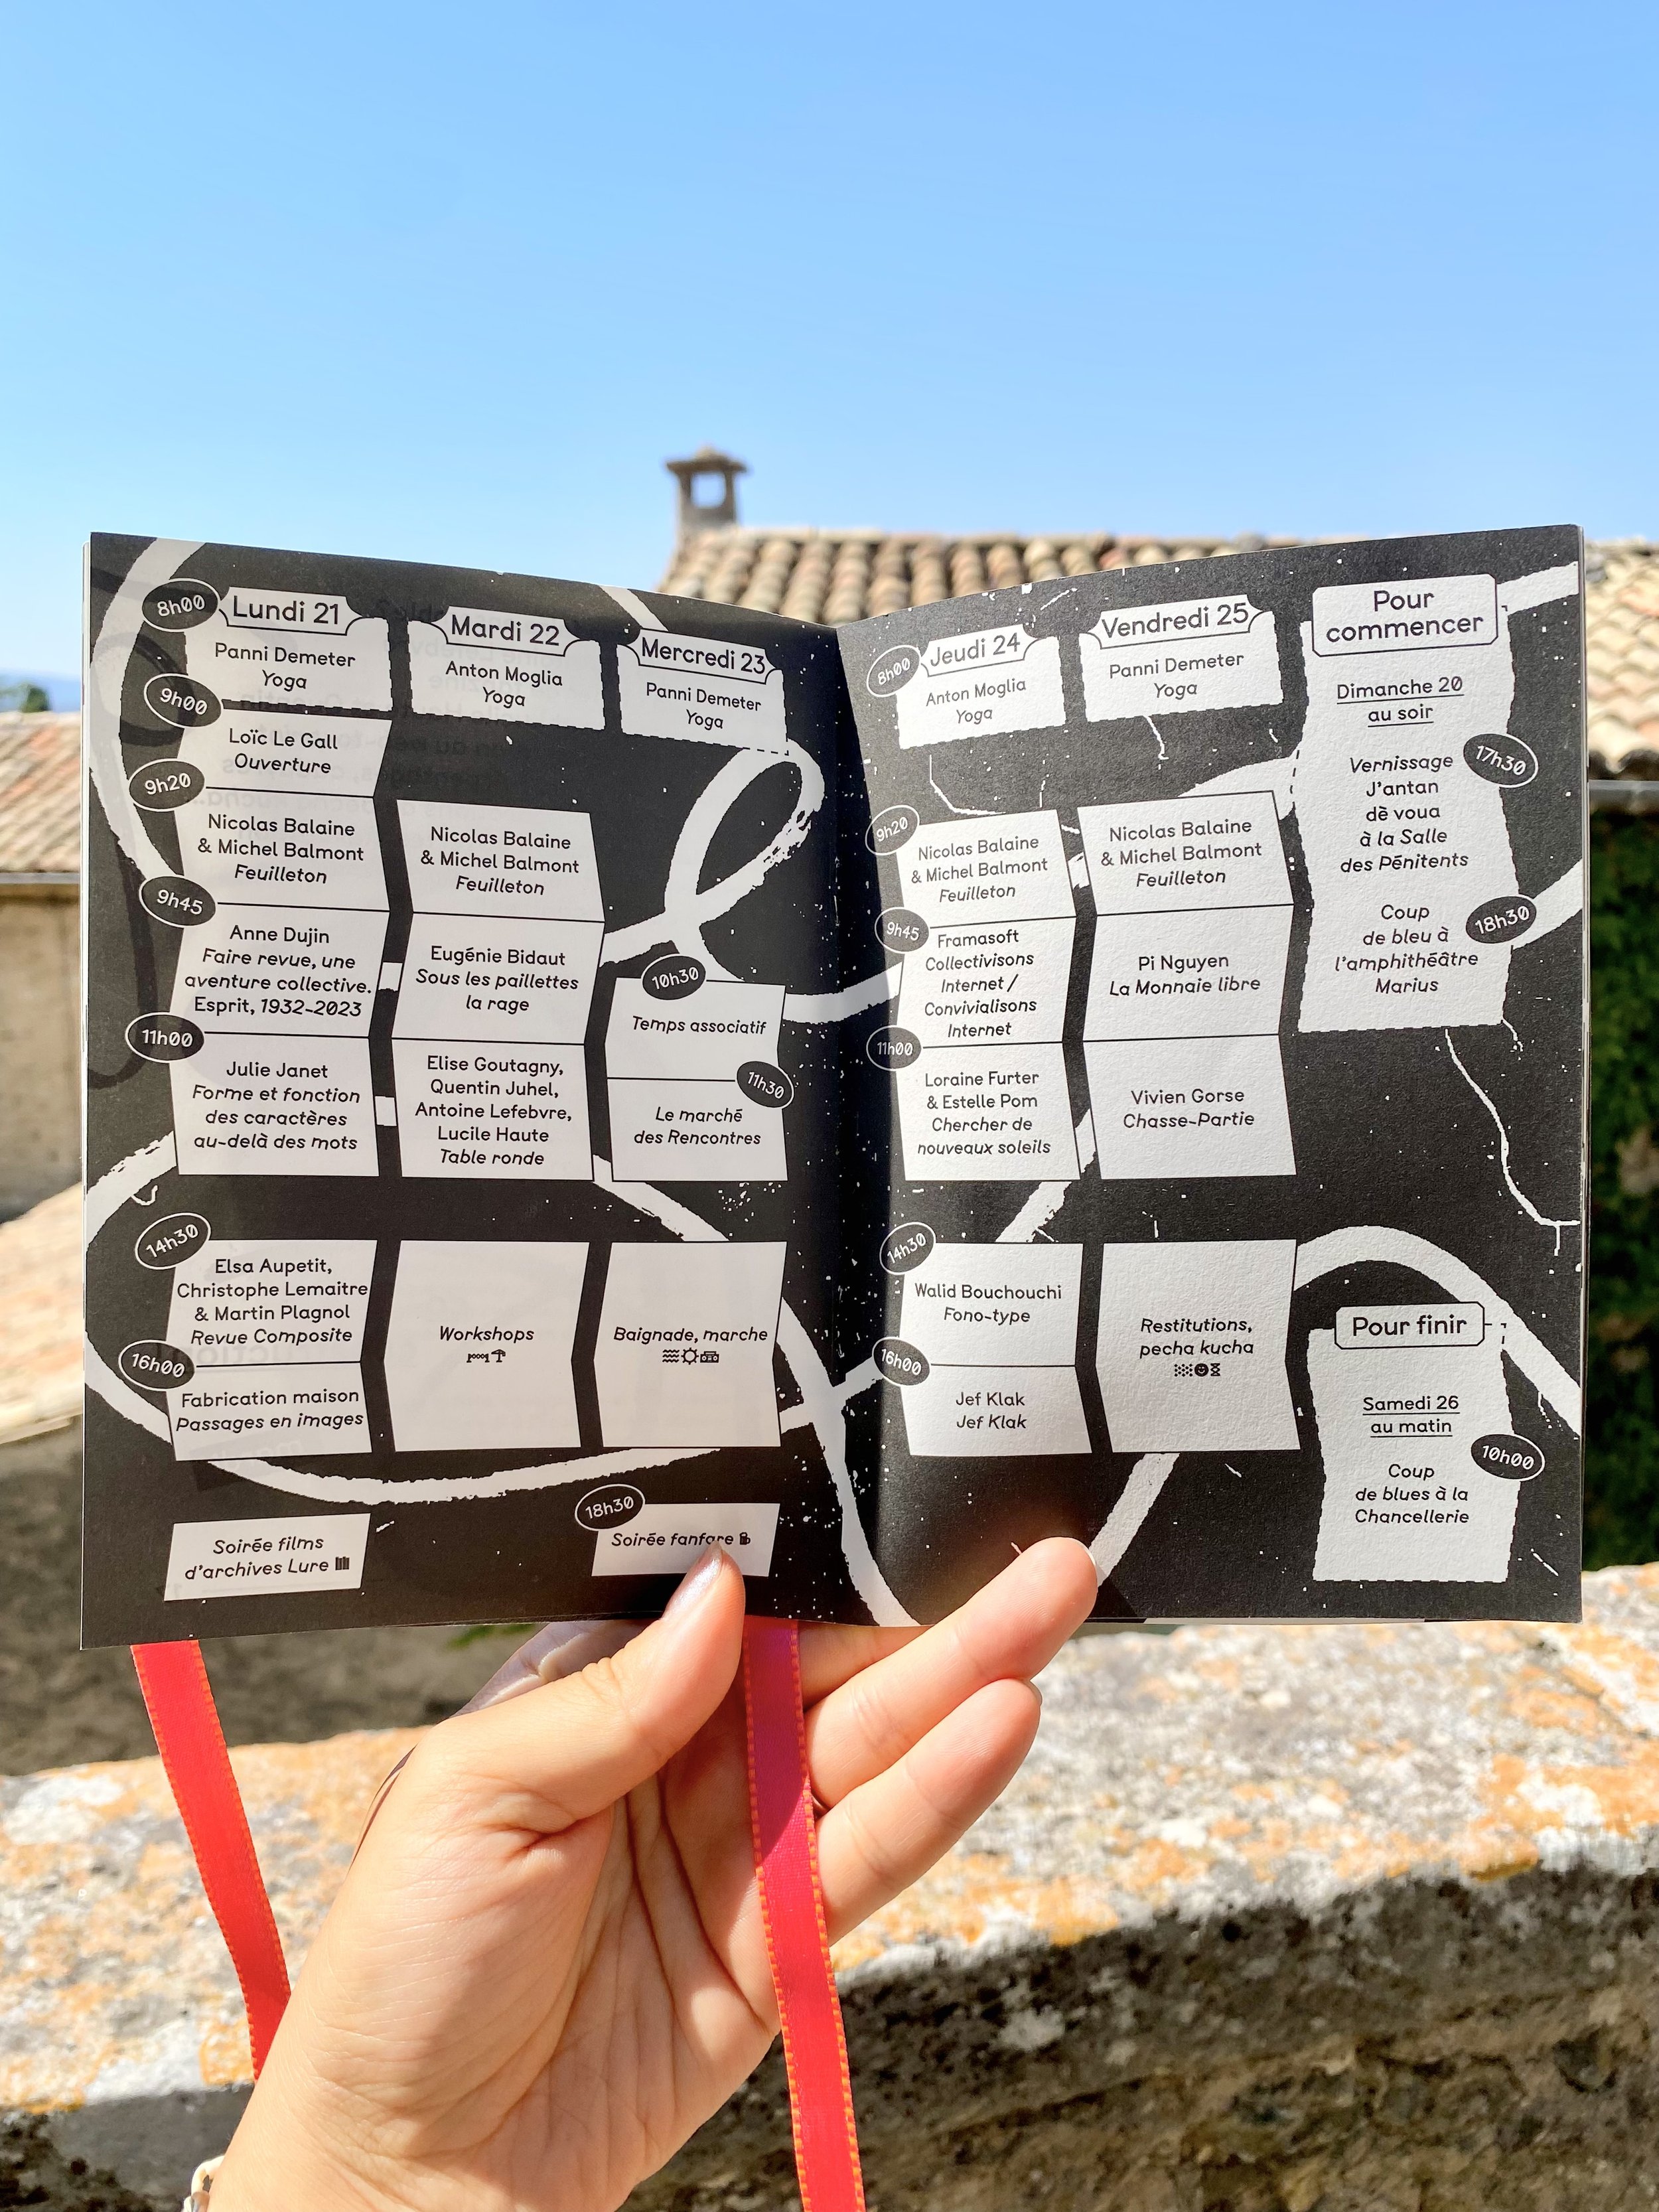 8h00
Lundi 21
Panni Demeter
Yoga
9h00
Loïc Le Gall
Ouverture
9h20
Nicolas Balaine
& Michel Balmont
Feuilleton
9h45
Anne Dujin
Faire revue, une
aventure collective.
Esprit, 1932-2023
11h00
Julie Janet
Forme et fonction
des caractères
au-delà des mots
14h30
Elsa Aupetit,
Christophe Lemaitre
& Martin Plagnol
Revue Composite
16h00
Fabrication maison
Passages en images
Soirée films
d'archives Lure
Mardi 22
Anton Moglia
Yoga
Nicolas Balaine
& Michel Balmont
Feuilleton
Eugénie Bidaut
Sous les paillettes
la rage
Elise Goutagny,
Quentin Juhel,
Antoine Lefebvre,
Lucile Haute
Table ronde
Workshops
Mercredi 23
Panni Demeter
Yoga
10h30
Temps associatif
11h30
Le marché
des Rencontres
Baignade, marche
18h30
Soirée fanfare
8h00
Jeudi 24
Anton Moglia
Yoga
9h20
Nicolas Balaine
& Michel Balmont
Feuilleton
9h45
Framasoft
Collectivisons
Internet /
Convivialisons
Internet
11h00
Loraine Furter
& Estelle Pom
Chercher de
nouveaux soleils
14h30
Walid Bouchouchi
Fono-type
16h00
Jef Klak
Jef Klak
Vendredi 25
Panni Demeter
Yoga
Nicolas Balaine
& Michel Balmont
Feuilleton
Pi Nguyen
La Monnaie libre
Vivien Gorse
Chasse-Partie
Restitutions,
pecha kucha
Pour
commencer
Dimanche 20
au soir
17h30
Vernissage
J'antan
dè voua
à la Salle
des Pénitents
18h30
Coup
de bleu à
l'amphithéâtre
Marius
Pour finir
Samedi 26
au matin
10h00
Coup
de blues à la
Chancellerie